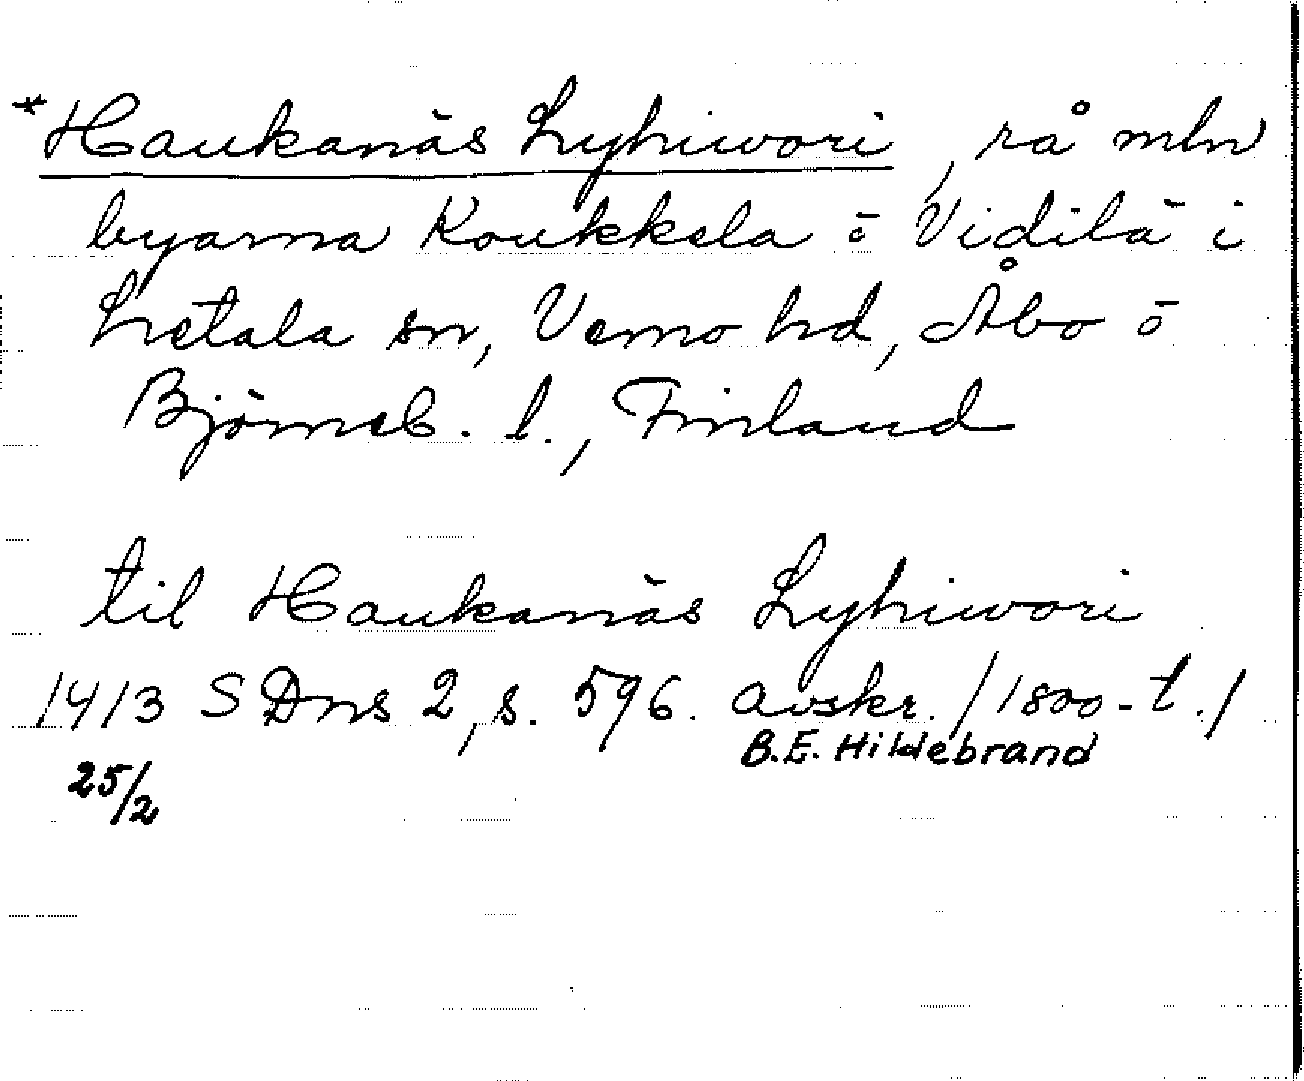 *Haukanäs Lyhiwori, rå mln
byarna Koukkela ō Vidilä i
Letala sn, Vemo hd, Åbo ō
Björneb. l., Finland
til Haukanäs Lyhiwori
1413 SDns 2, s. 596. Avskr. /1800-t./
B.E. Hildebrand
25/2